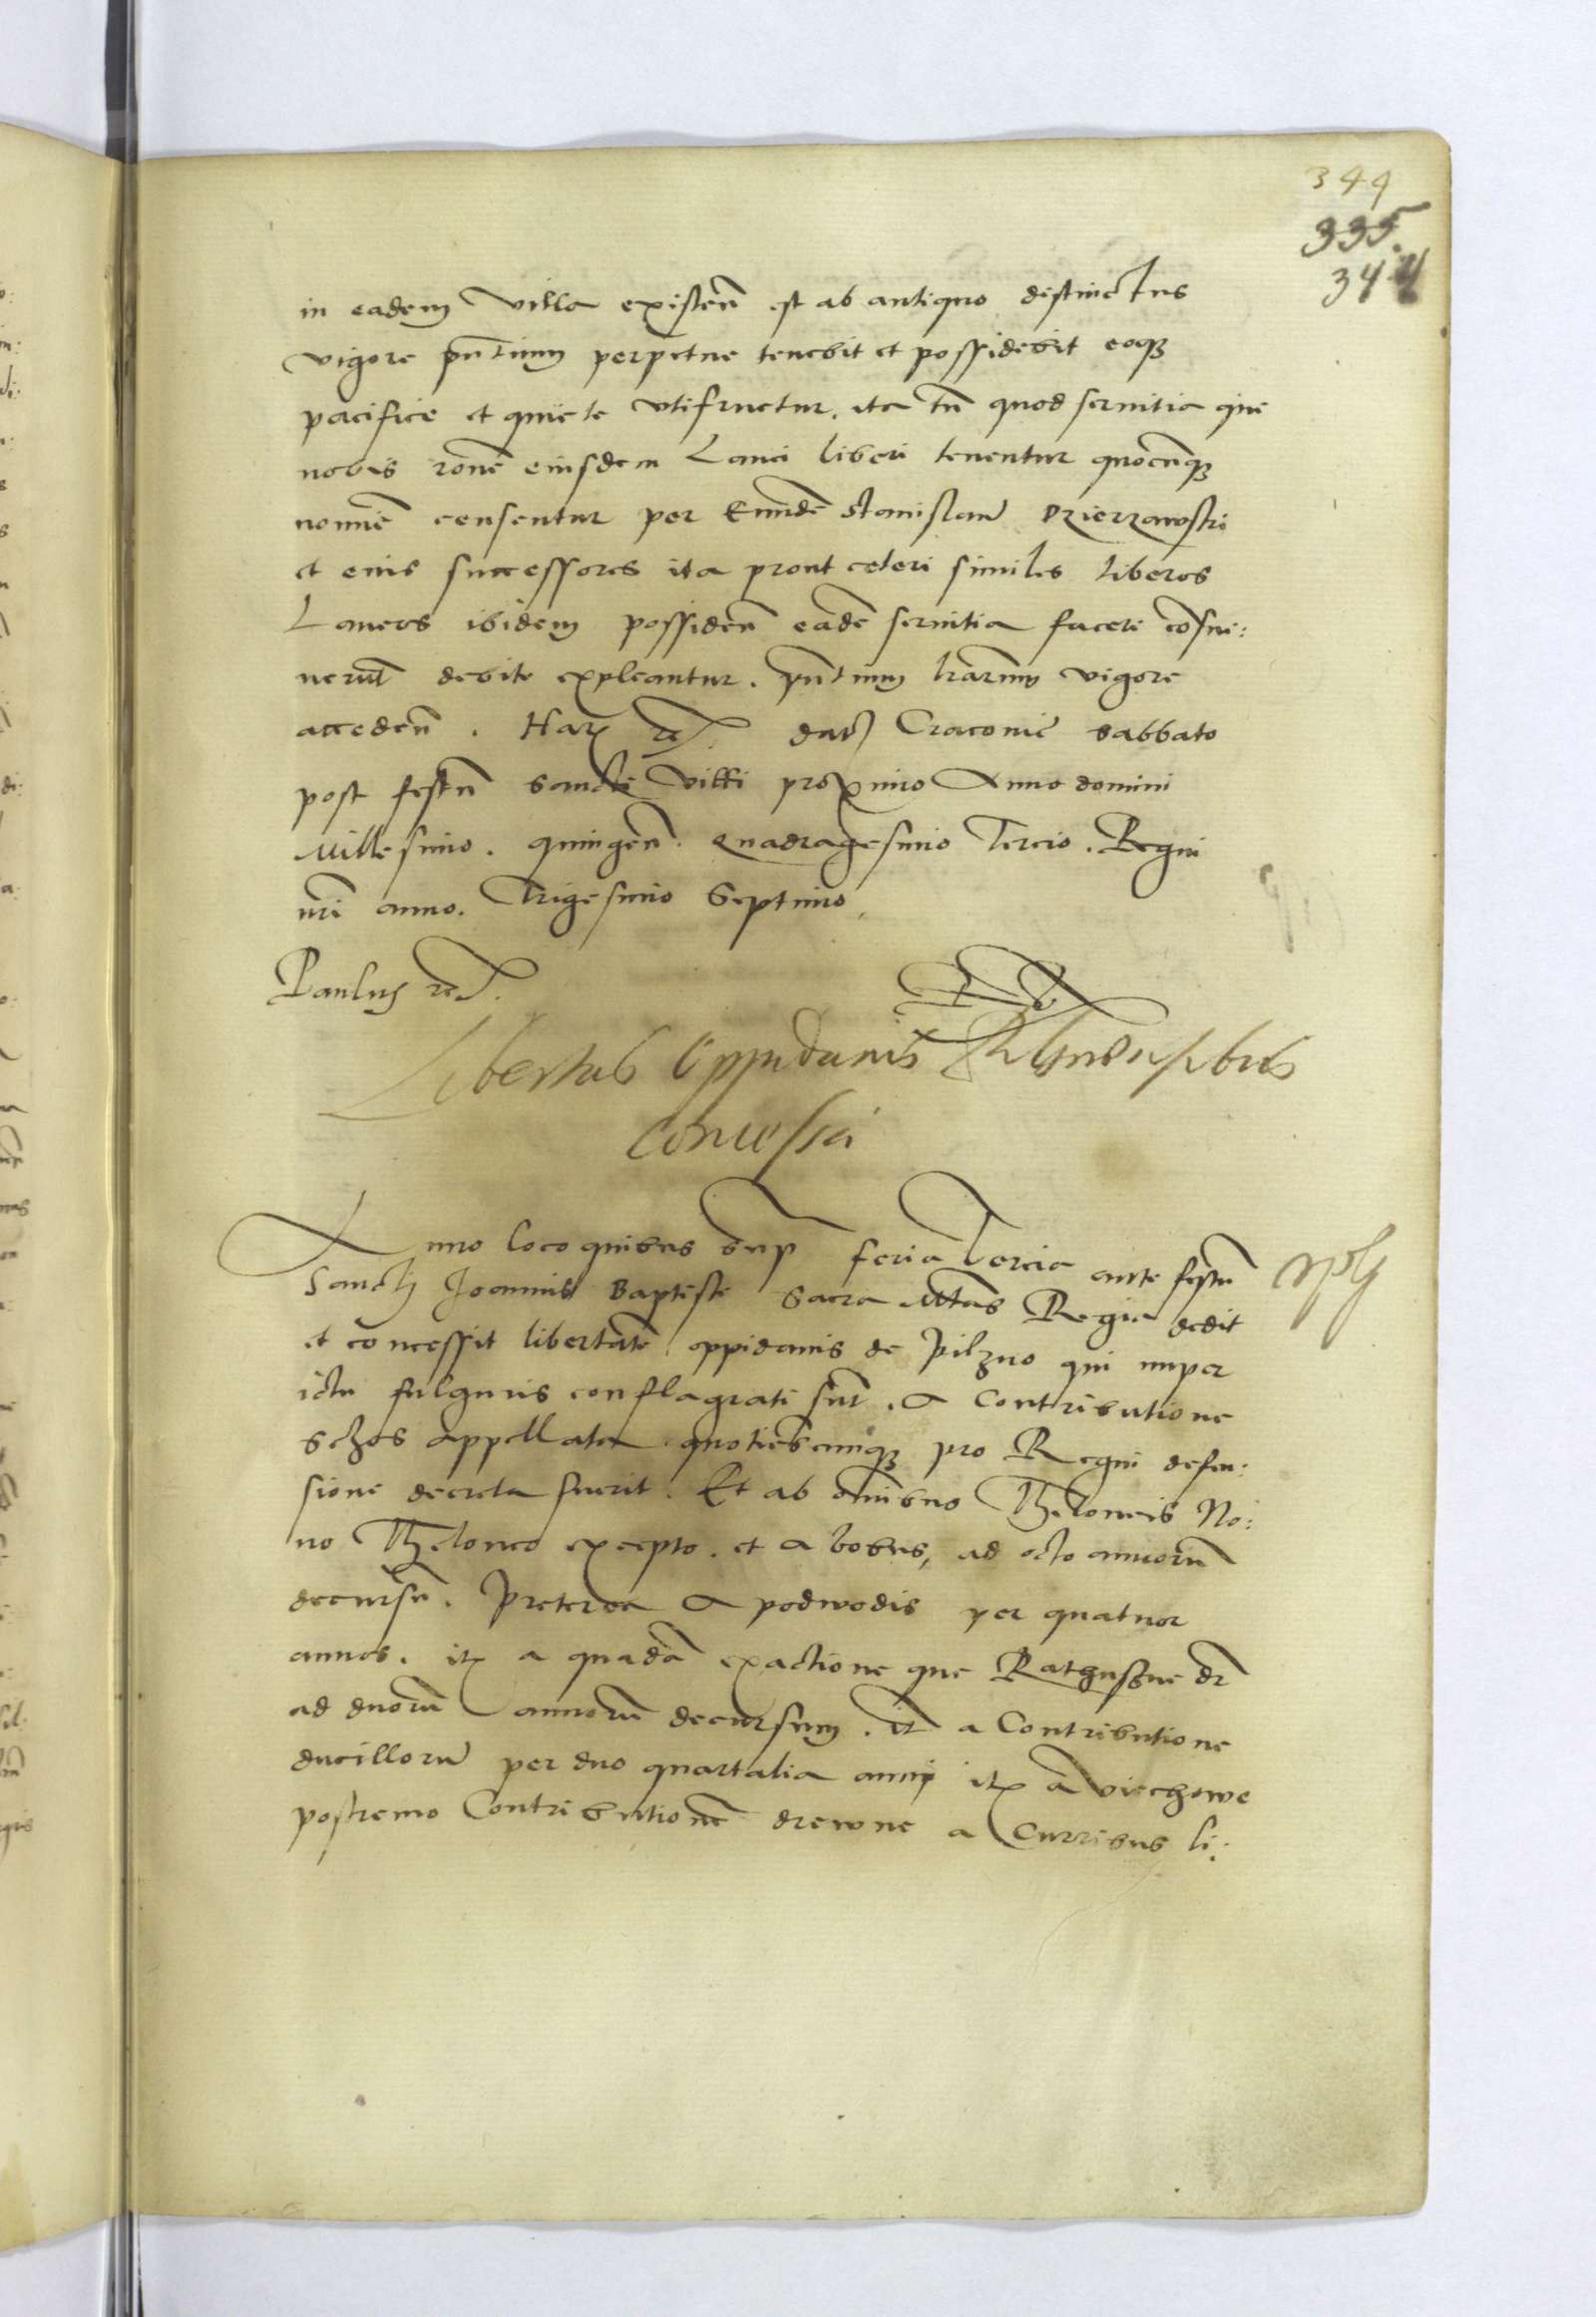 344
335.
344
in eadem villa existen̄ est ab antiquo distinctus
vigore pn̄tium perpetue tenebit et possidebit eoqꝫ
pacifice et quiete vtifruetur. ita tn̄ quod seruitia que
nobis rōne eiusdem Lanei liberi tenentur quocūqꝫ
nomīe censentur per Eundē Stanislaū Dzierzanowski
et eius successores ita prout ceteri similes liberos
Laneos ibidem possiden̄ eadē seruitia facere cōsue:
uerūt debite expleantur. pn̄tium lrārum vigore
acceden̄. Harꝫ dat Cracouie sabbato
post festū sancti Viti proximo Anno domini
Millesimo. quingen̄. Quadragesimo Tercio. Regni
nrī anno. Trigesimo Septimo
Paulus
Libertas Oppidanis Pilsnensibus
concessa
Anno loco quibus sup feria Tercia ante festū
Sancti Joannis Baptiste Sacra Mtās Regia dedit
et concessit libertatē oppidanis de Pilzno qui nuper
ictu fulguris conflagrati sūt. a Contributione
schos appellata quotiescunqꝫ pro Regni defen:
sione decreta fuerit. Et ab omībus Theloneis No:
uo Theloneo excepto. et a bobus, ad octo annorū
decursū. Preterea a podwodis per quatuor
annos. itꝫ a quadā exactione que Rathusne dr̄
ad duorū annorū decursum. it̄ a Contributione
ducillorū per duo quartalia anni itꝫ a viechowe
postremo Contributionē drewne a Curribus li: